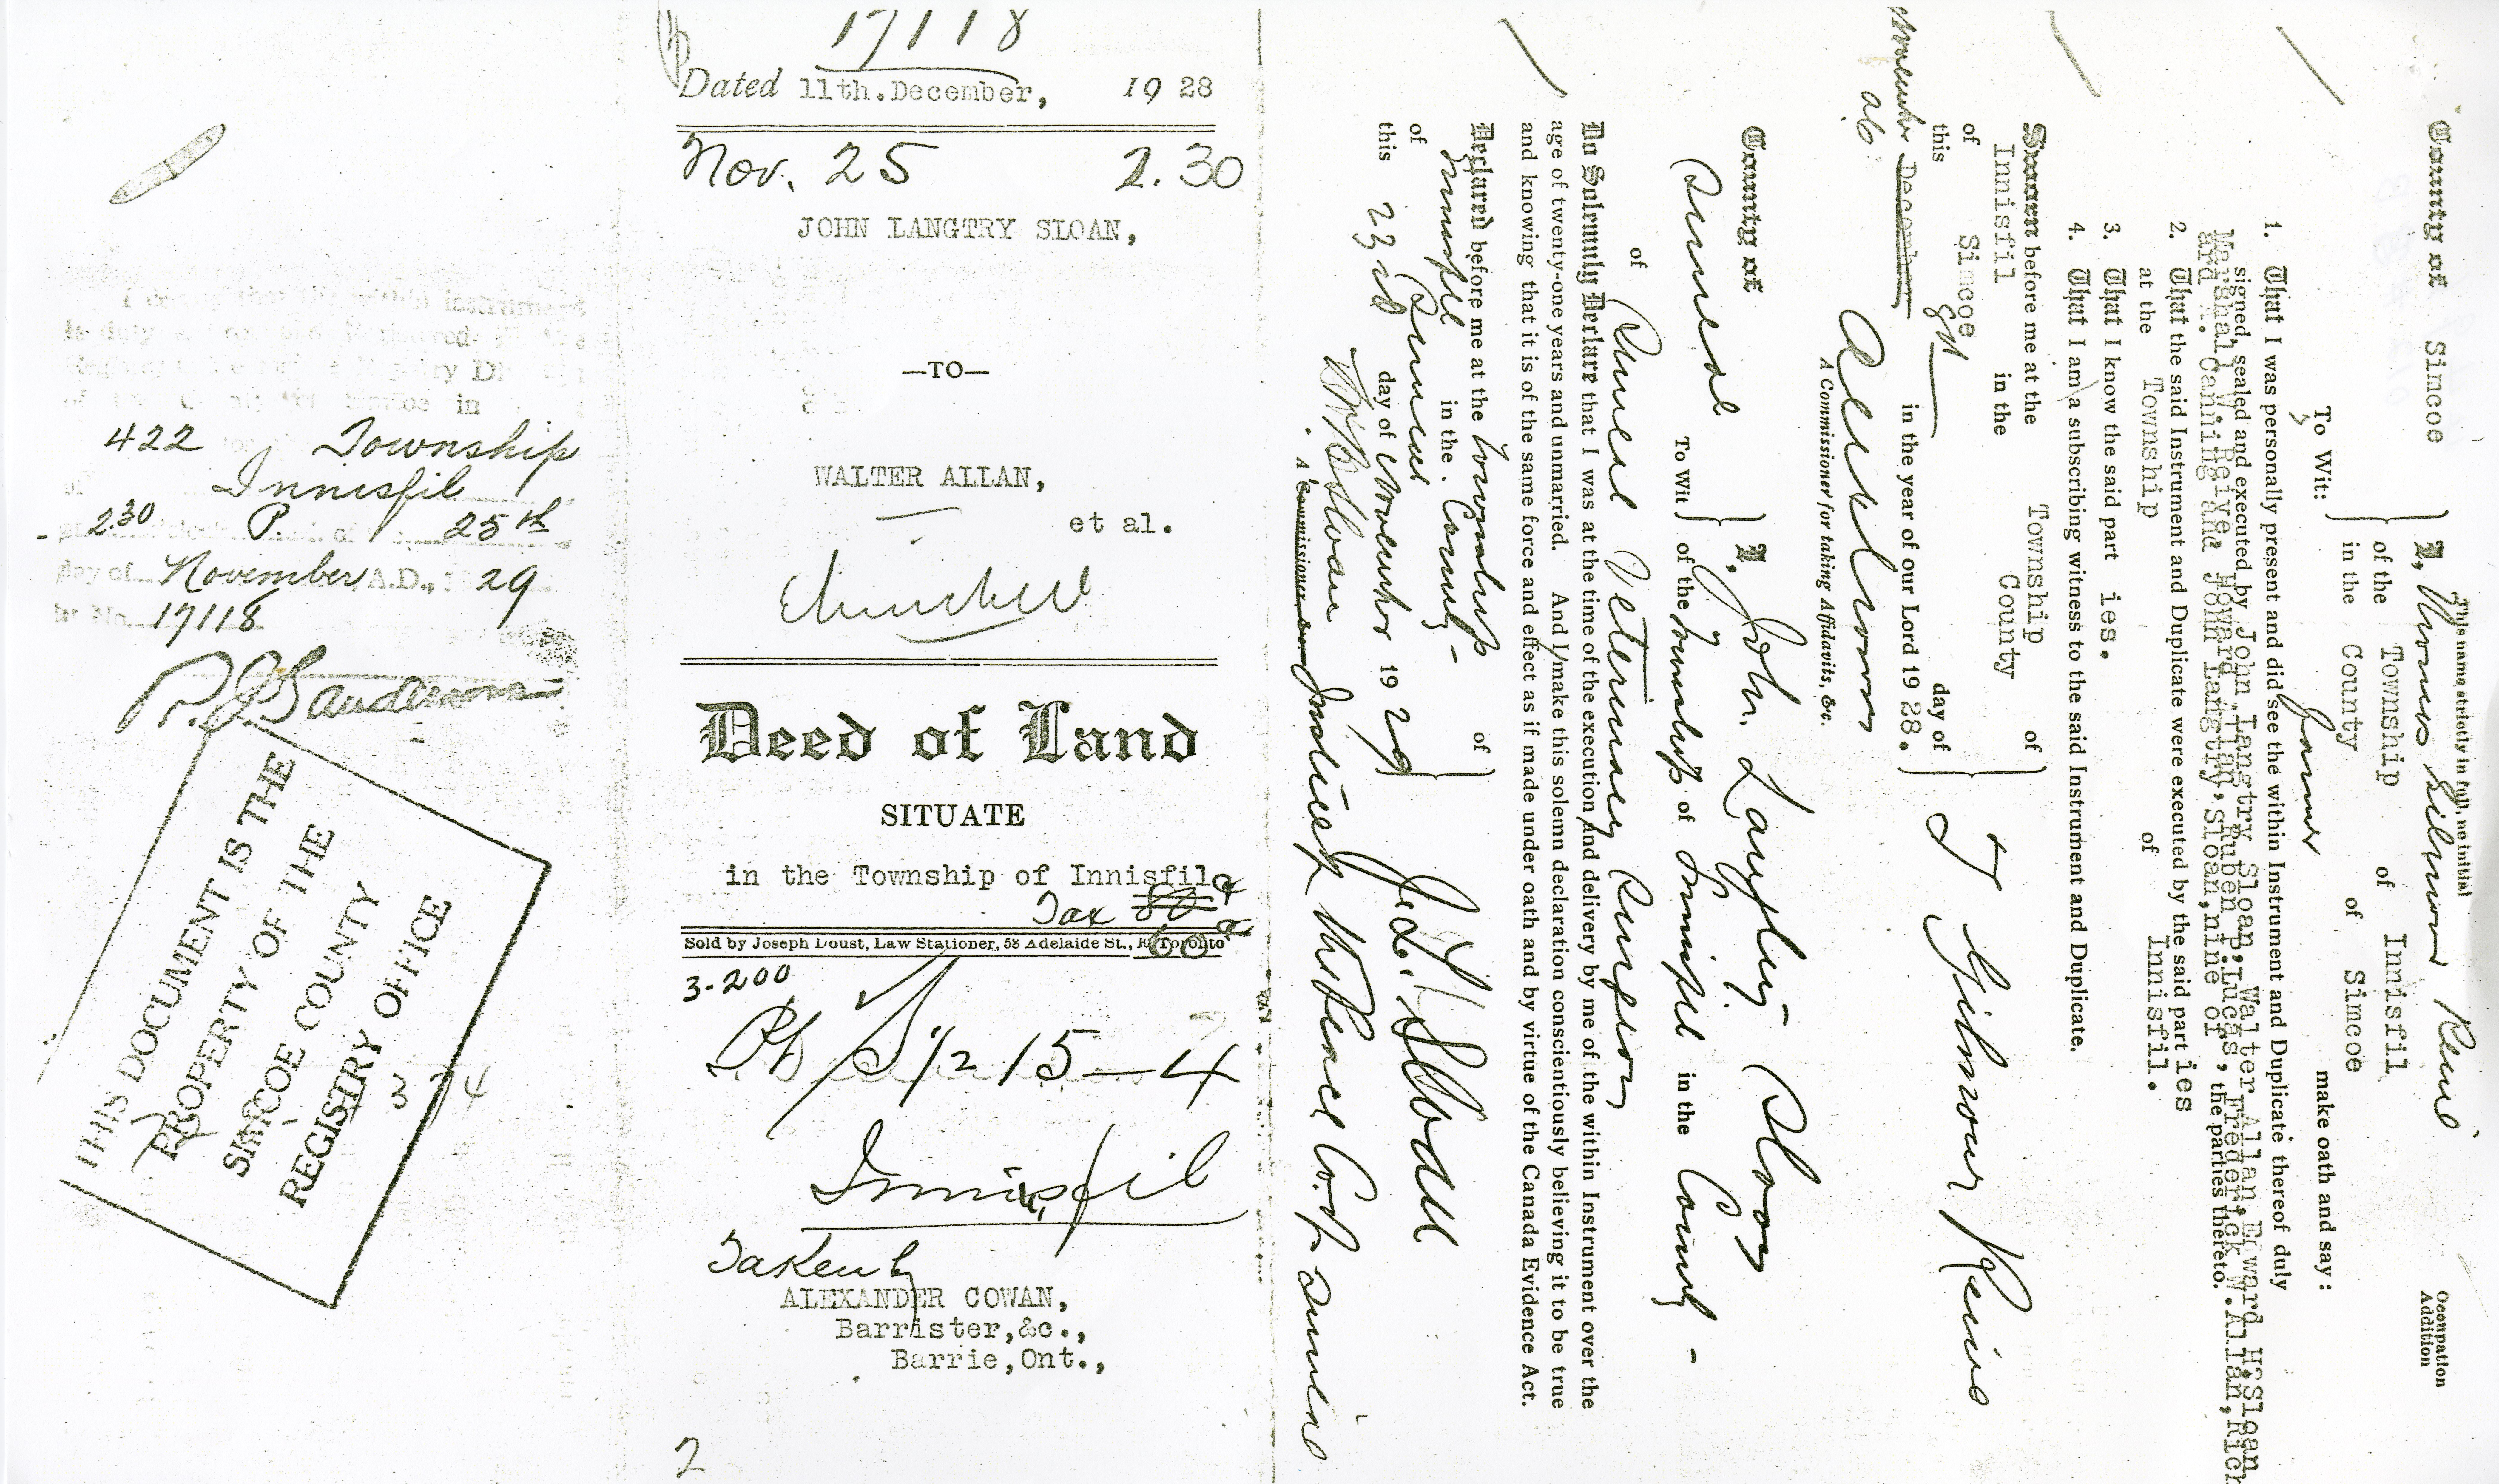 I certify that the within instrument
is duly
422 Township
Innisfil
2.30 P. 25th
day of November A.D., 29
17118
R. J. Sanderson
THIS DOCUMENT IS THE
PROPERTY OF THE
SIMCOE COUNTY
REGISTRY OFFICE
17118
Dated 11th.December, 19 28
Nov. 25 2.30
JOHN LANGTRY SLOAN,
—TO—
WALTER ALLAN,
et al.
Deed of Land
SITUATE
in the Township of Innisfil
Tax
Sold by Joseph Doust, Law Stationer, 58 Adelaide St., E. Toronto
3-200
Pt S 1/2 15—4
Innisfil
Taken by
ALEXANDER COWAN,
Barrister,&c.,
Barrie,Ont.,
2
This name strictly in full, no initial
Occupation
Addition
County of Simcoe
To Wit:
I, Thomas Gilmour
of the Township of Innisfil
in the County of Simcoe
Farmer make oath and say:
1. That I was personally present and did see the within Instrument and Duplicate thereof duly
signed, sealed and executed by John Langtry Sloan, Walter Allan, Edward H.Sloan
the parties thereto.
2. That the said Instrument and Duplicate were executed by the said part ies
at the Township of Innisfil.
3. That I know the said part ies.
4. That I am a subscribing witness to the said Instrument and Duplicate.
Sworn before me at the Township of
Innisfil in the County
of Simcoe
this day of
November December in the year of our Lord 19 28.
A Commissioner for taking Affidavits, &c.
County of
Simcoe
To Wit
I, John Langtry Sloan
of the Township of Innisfil in the County
of Simcoe Veterinary Surgeon
Do Solemnly Declare that I was at the time of the execution and delivery by me of the within Instrument over the
age of twenty-one years and unmarried. And I make this solemn declaration conscientiously believing it to be true
and knowing that it is of the same force and effect as if made under oath and by virtue of the Canada Evidence Act.
Declared before me at the Township of
Innisfil in the County
of Simcoe
this 23rd day of November 19 29
J. L. Sloan
A Commissioner